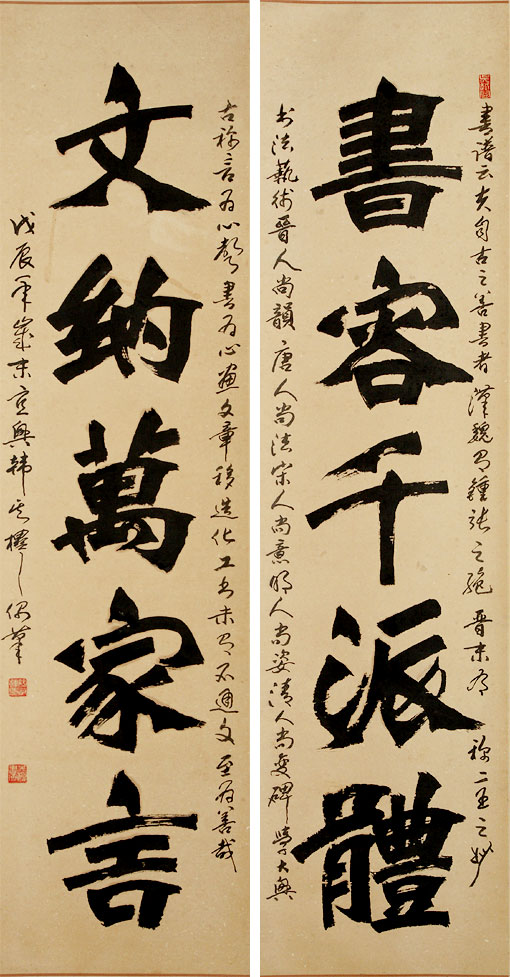 書譜云夫自古之善書者漢魏有鍾張之絶晉末称二王之妙
書容千派體
书法藝術晉人尚韻唐人尚法宋人尚意明人尚姿清人尚变碑學大興
古称言为心聲書为心画文章移造化工书未有不通文至为善哉
文納萬家言
戊辰年歲末宜興韓其樓偶筆